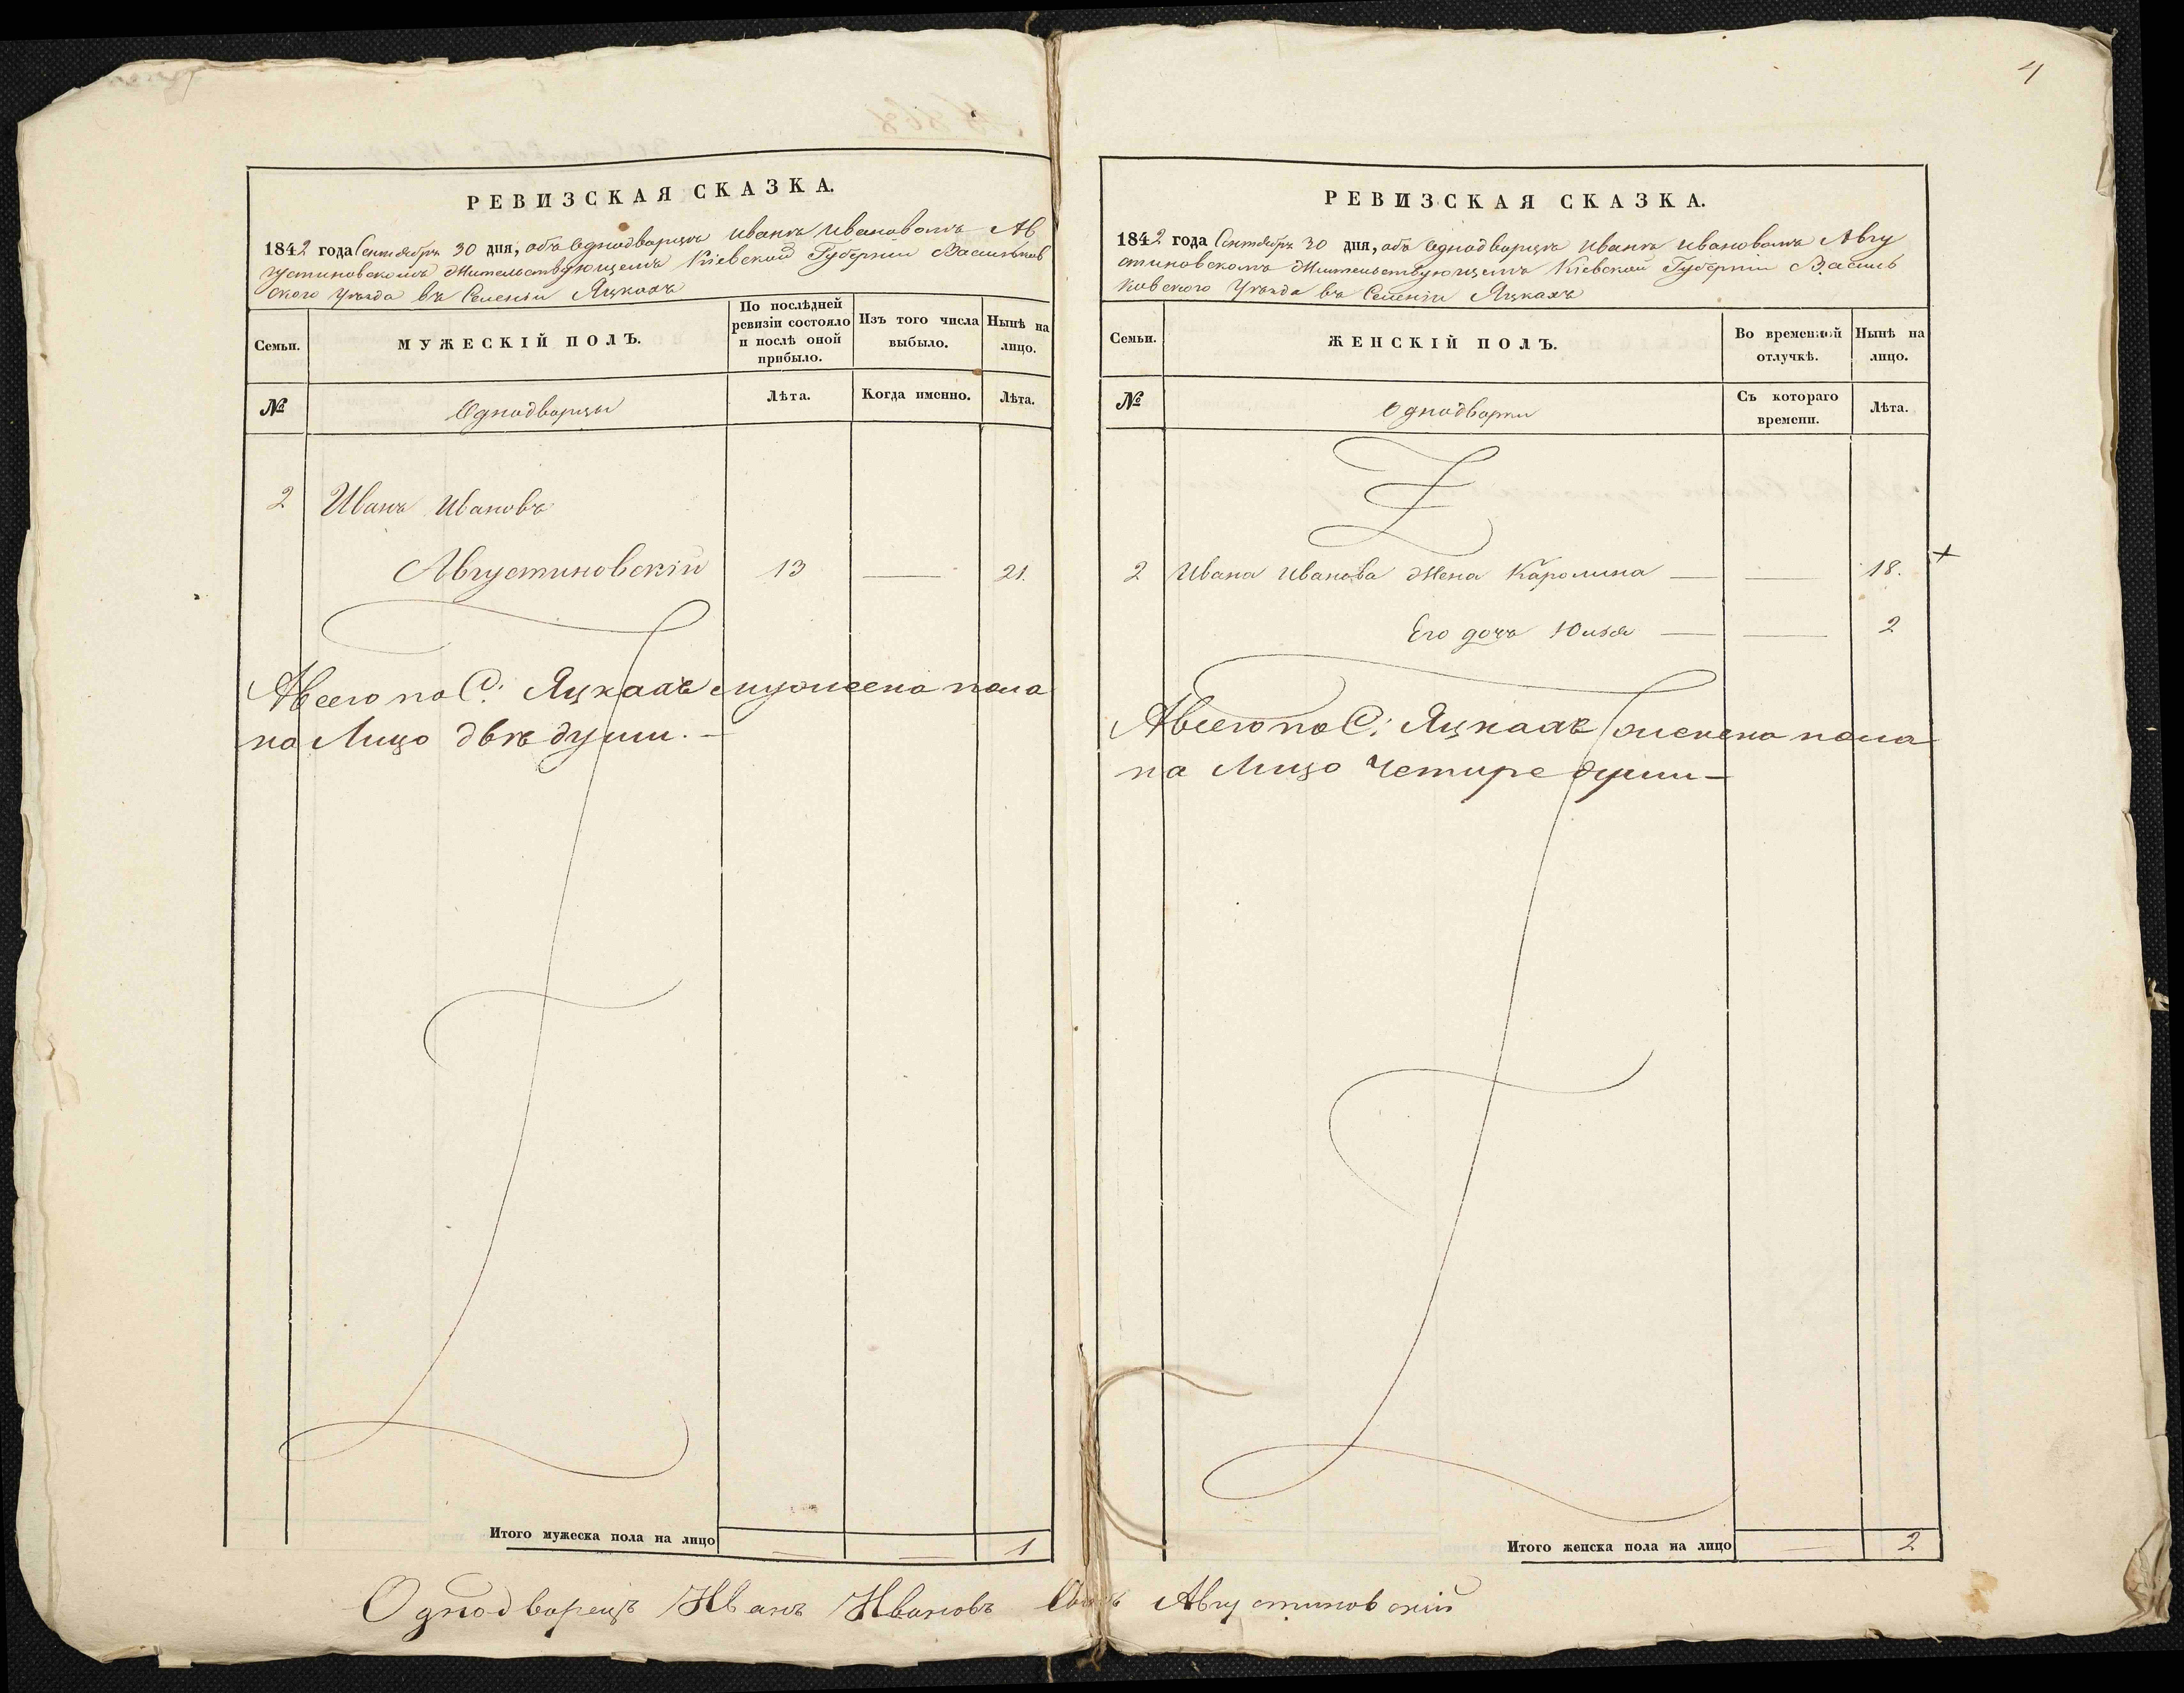 РЕВИЗСКАЯ СКАЗКА.
1842 года Сентября 30 дня, объ Однодворцѣ Иванѣ Ивановомъ Ав
густиновскомъ Жительствующемъ Кіевской Губерніи Васильков
ского Уѣзда въ Селеніи Яцкахъ
Семьи.
МУЖЕСКІЙ ПОЛЪ.
По послѣдней
ревизіи состояло
и послѣ оной
прибыло.
Изъ того числа
выбыло.
Нынѣ на
лицо.
№
Однодворцы
Лѣта.
Когда именно.
Лѣта.
2 Иванъ Ивановъ
Августиновскій 13 — 21.
А всего по С. Яцкахъ мужеска пола
на Лицо двѣ души. —
Итого мужеска пола на лицо — — 1
4
РЕВИЗСКАЯ СКАЗКА.
1842 года Сентября 30 дня, объ Однодворцѣ Иванѣ Ивановомъ Авгу
стиновскомъ Жительствующемъ Кіевской Губерніи Василь
ковского Уѣзда въ Селеніи Яцкахъ
Семьи.
ЖЕНСКІЙ ПОЛЪ.
Во временной
отлучкѣ.
Нынѣ на
лицо.
№
Однодворки
Съ котораго
времени.
Лѣта.
2 Ивана Иванова Жена Каролина — — 18. +
Его дочь Юлія — — 2
А всего по С. Яцкахъ женска пола
на Лицо Четире души —
Итого женска пола на лицо — 2
Однодворецъ Иванъ Ивановъ Сынъ Августиновскій